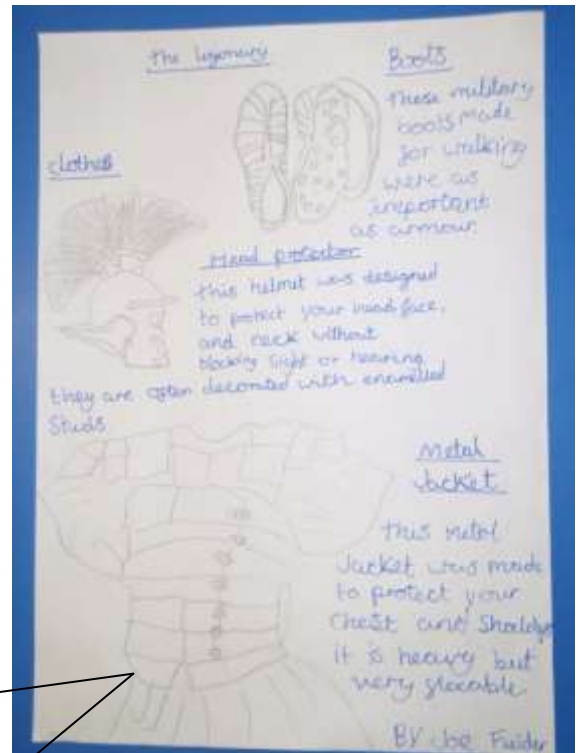 the legionary
Boots
these military
boots made
for walking
were as
important
as armour
clothes
Head protector
this helmet was designed
to protect your head, face,
and neck without
blocking sight or hearing
they are often decorated with enamelled
Studs
Metal
Jacket
this metal
Jacket was made
to protect your
Chest and
it is heavy but
very
BY Joe